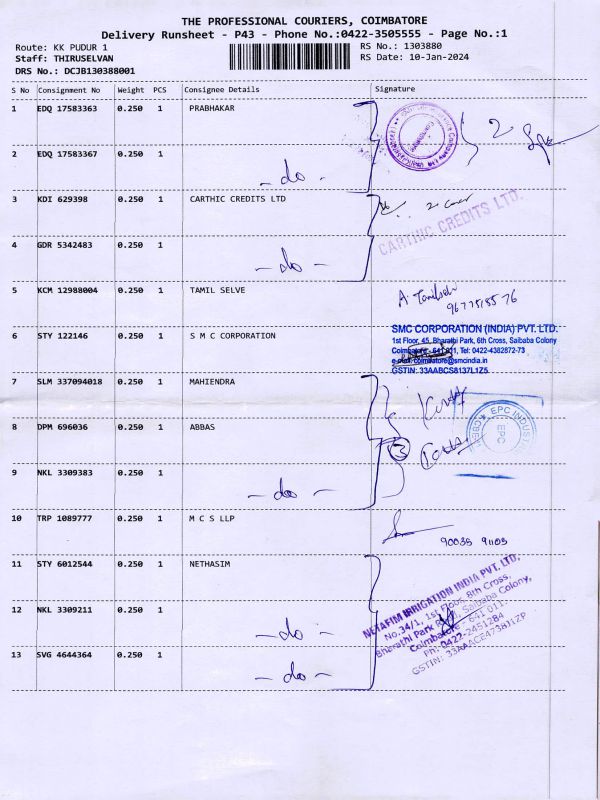 THE PROFESSIONAL COURIERS, COIMBATORE
Delivery Runsheet - P43 - Phone No.:0422-3505555 - Page No.:1
Route: KK PUDUR 1
RS No.: 1303880
Staff: THIRUSELVAN
RS Date: 10-Jan-2024
DRS No.: DCJB130388001
S No Consignment No Weight PCS Consignee Details Signature
1 EDQ 17583363 0.250 1 PRABHAKAR
2
2 EDQ 17583367 0.250 1
- do -
3 KDI 629398 0.250 1 CARTHIC CREDITS LTD
CARTHIC CREDITS LTD.
4 GDR 5342483 0.250 1
- do -
5 KCM 12988004 0.250 1 TAMIL SELVE
6 STY 122146 0.250 1 S M C CORPORATION
SMC CORPORATION (INDIA) PVT. LTD.
1st Floor, 45, Bharathi Park, 6th Cross, Saibaba Colony
Coimbatore - 641 011, Tel: 0422-4382872-73
e-mail: coimbatore@smcindia.in
GSTIN: 33AABCS8137L1Z5
7 SLM 337094018 0.250 1 MAHIENDRA
8 DPM 696036 0.250 1 ABBAS
EPC INDUSTRI
EPC
3
9 NKL 3309383 0.250 1
- do -
10 TRP 1089777 0.250 1 M C S LLP
90038 91103
11 STY 6012544 0.250 1 NETHASIM
NETAFIM IRRIGATION INDIA PVT. LTD.
No.34/1, 1st Floor, 8th Cross,
Bharathi Park Road, Saibaba Colony,
Coimbatore - 641 011.
Ph: 0422-2451284
GSTIN: 33AAACE4738J1ZP
12 NKL 3309211 0.250 1
- do -
13 SVG 4644364 0.250 1
- do -